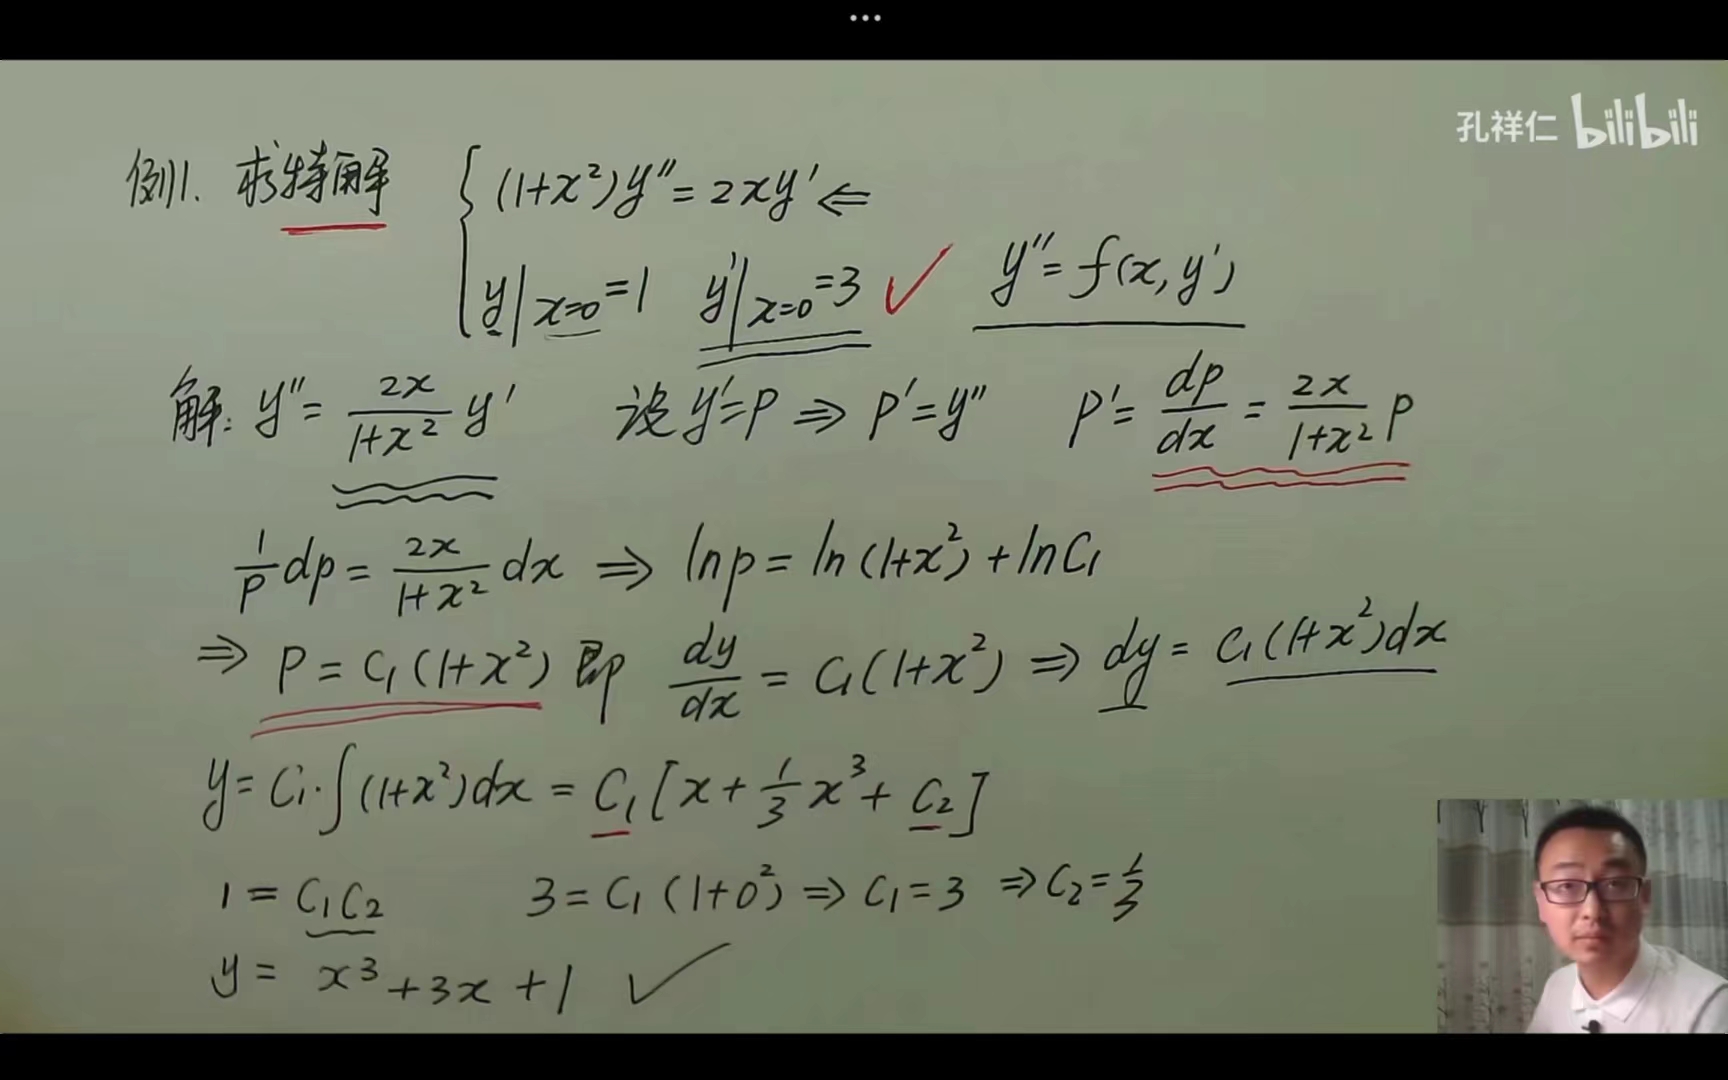 ...
孔祥仁 bilibili
例1. 求特解 { (1+x²)y″=2xy′ ⇐
y|x=0=1 y′|x=0=3 ✓ y″=f(x,y′)
解: y″= 2x/(1+x²) y′ 设 y′=p ⇒ p′=y″ p′= dp/dx = 2x/(1+x²) p
1/p dp = 2x/(1+x²) dx ⇒ ln p = ln(1+x²)+ln C₁
⇒ p = C₁(1+x²) 即 dy/dx = C₁(1+x²) ⇒ dy = C₁(1+x²)dx
y= C₁·∫(1+x²)dx = C₁[x+1/3x³+C₂]
1 = C₁C₂ 3=C₁(1+0²) ⇒ C₁=3 ⇒ C₂=1/3
y= x³+3x+1 ✓